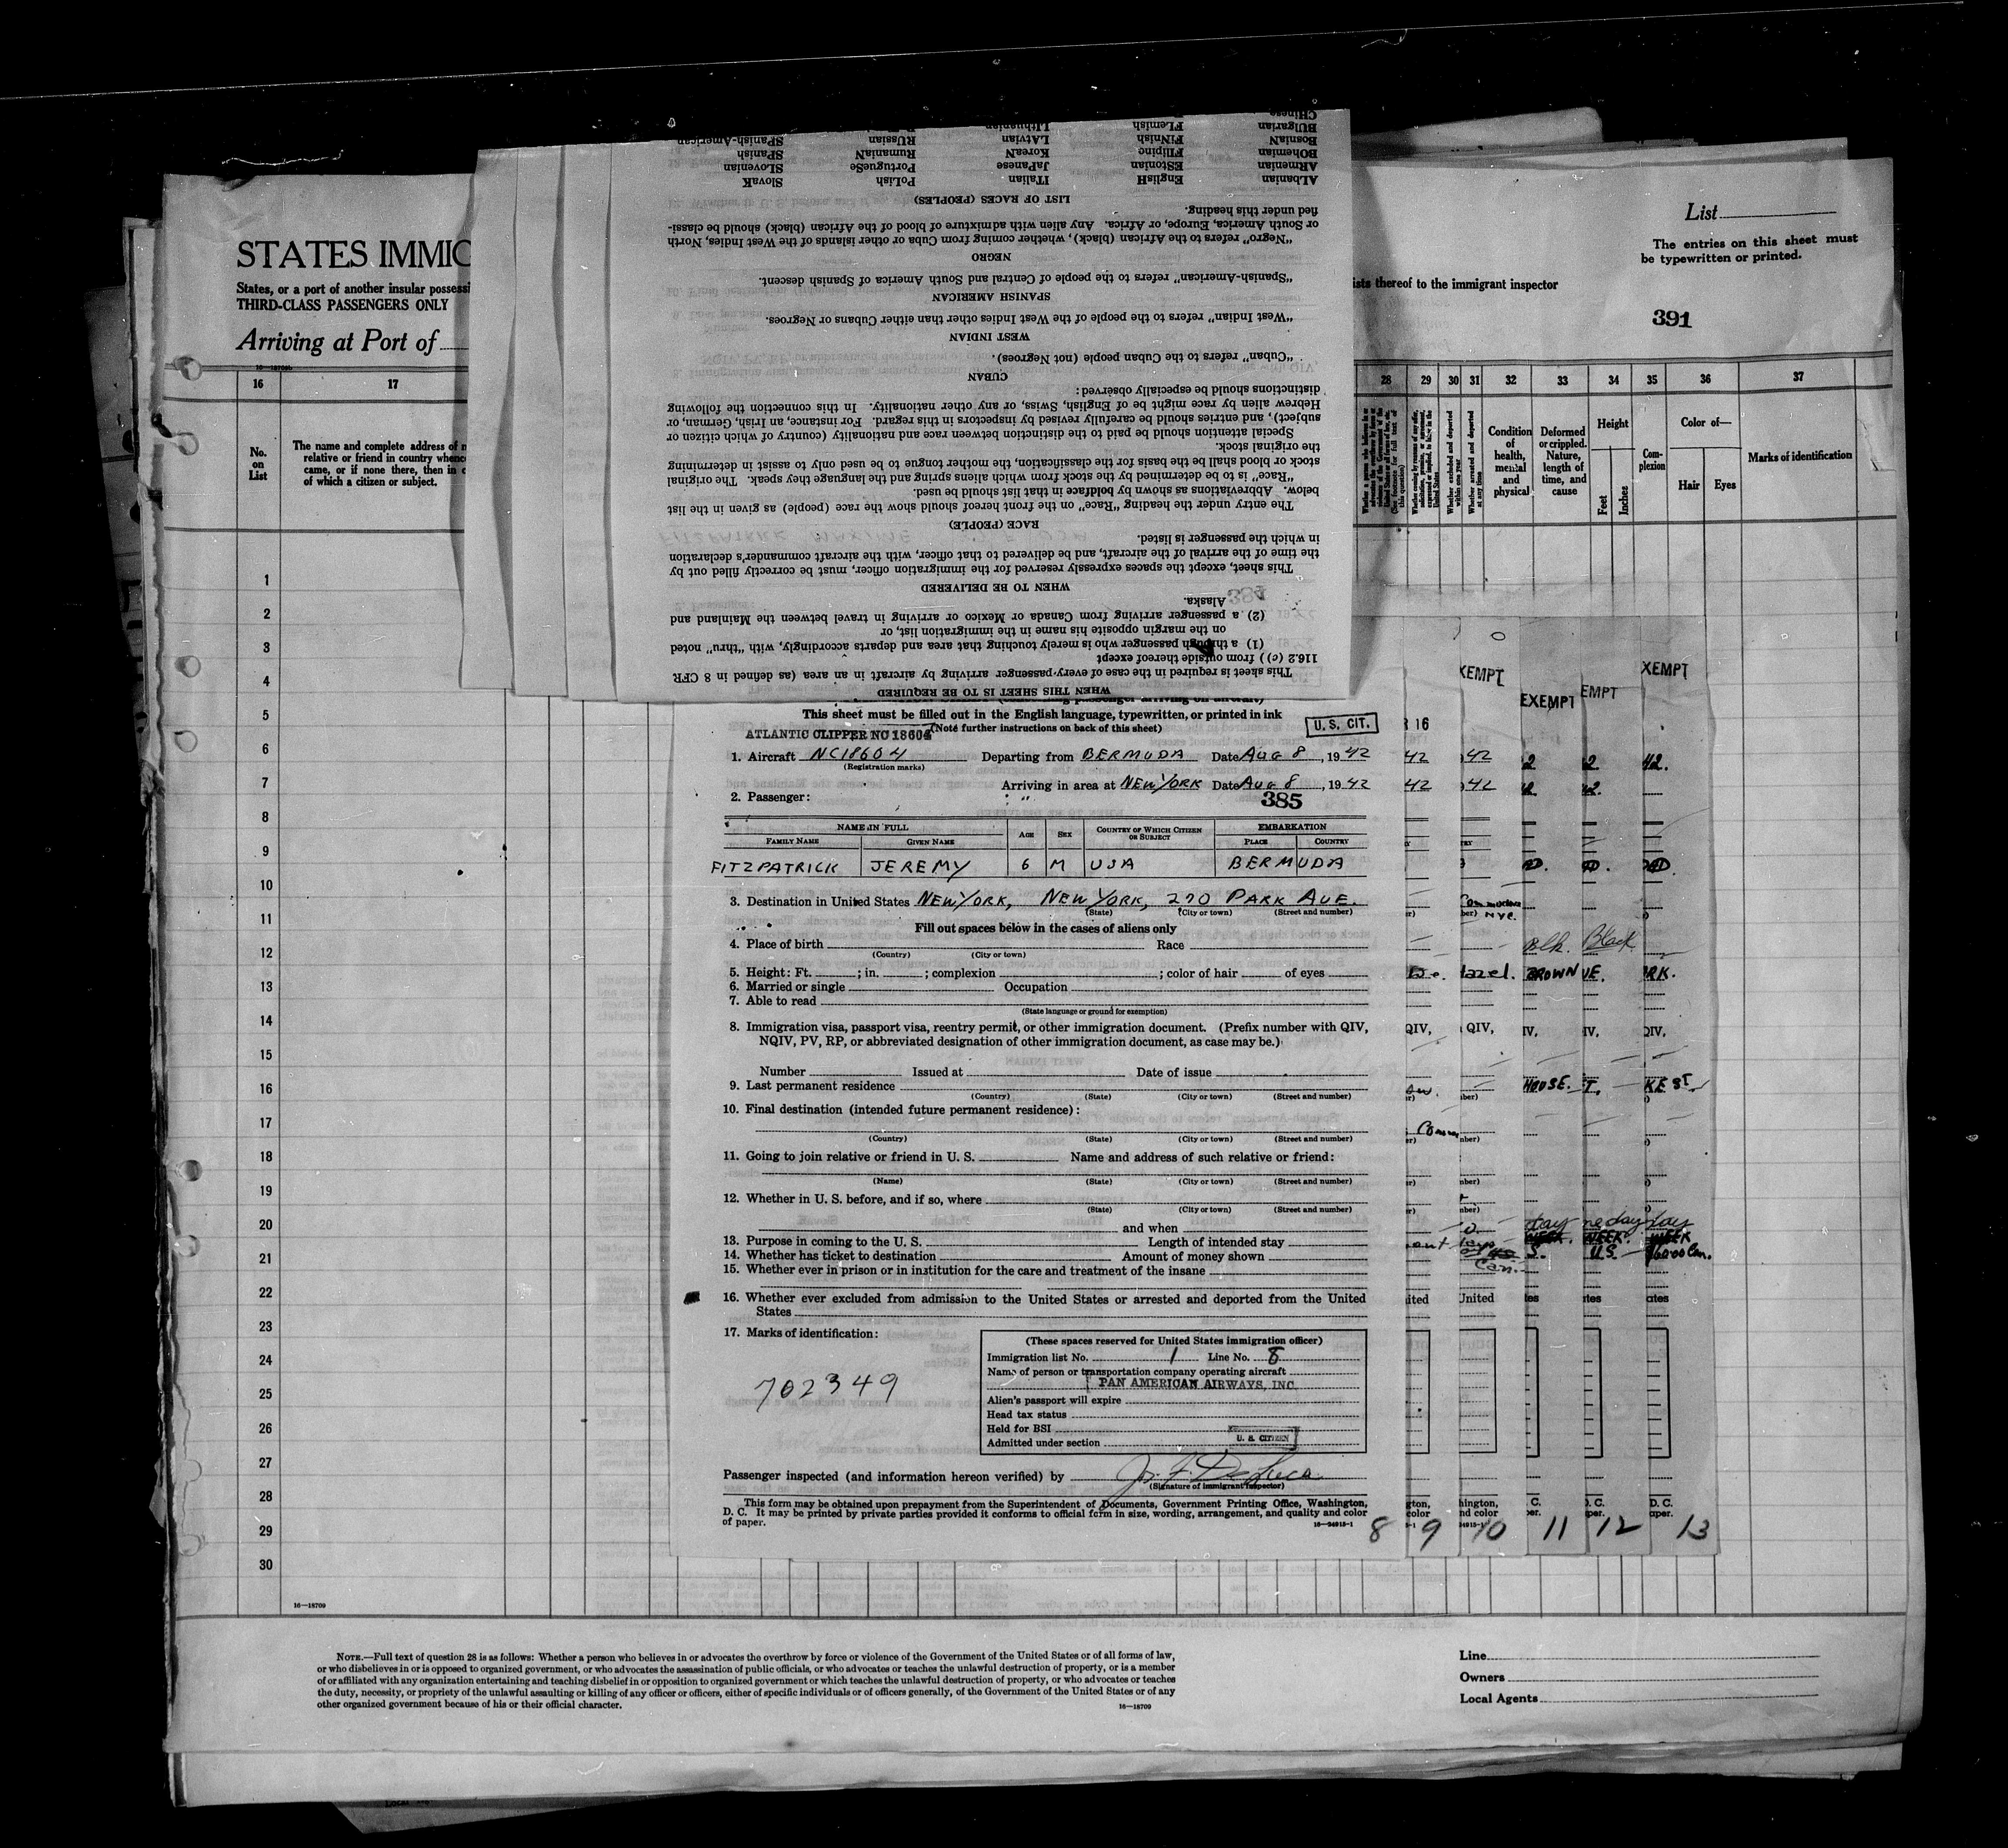 STATES IMMIG
States, or a port of another insular possessi
THIRD-CLASS PASSENGERS ONLY
Arriving at Port of
List
The entries on this sheet must
be typewritten or printed.
ists thereof to the immigrant inspector
391
16 17 28 29 30 31 32 33 34 35 36 37
No. on List
The name and complete address of n
relative or friend in country whence
came, or if none there, then in c
of which a citizen or subject.
Condition of health, mental and physical
Deformed or crippled. Nature, length of time, and cause
Height
Feet
Inches
Com-plexion
Color of—
Hair
Eyes
Marks of identification
1
2
3
4
5
6
7
8
9
10
11
12
13
14
15
16
17
18
19
20
21
22
23
24
25
26
27
28
29
30
16—18709
WHEN THIS SHEET IS TO BE REQUIRED
This sheet is required in the case of every passenger arriving by aircraft in an area (as defined in 8 CFR
116.2 (c)) from outside thereof except
(1) a through passenger who is merely touching that area and departs accordingly, with "thru" noted
on the margin opposite his name in the immigration list, or
(2) a passenger arriving from Canada or Mexico or arriving in travel between the Mainland and
Alaska.
WHEN TO BE DELIVERED
This sheet, except the spaces expressly reserved for the immigration officer, must be correctly filled out by
the time of the arrival of the aircraft, and be delivered to that officer, with the aircraft commander's declaration
in which the passenger is listed.
RACE (PEOPLE)
The entry under the heading "Race" on the front hereof should show the race (people) as given in the list
below. Abbreviations as shown by boldface in that list should be used.
"Race" is to be determined by the stock from which aliens spring and the language they speak. The original
stock or blood shall be the basis for the classification, the mother tongue to be used only to assist in determining
the original stock.
Special attention should be paid to the distinction between race and nationality (country of which citizen or
subject), and entries should be carefully revised by inspectors in this regard. For instance, an Irish, German, or
Hebrew alien by race might be of English, Swiss, or any other nationality. In this connection the following
distinctions should be especially observed:
CUBAN
"Cuban" refers to the Cuban people (not Negroes).
WEST INDIAN
"West Indian" refers to the people of the West Indies other than either Cubans or Negroes.
SPANISH AMERICAN
"Spanish-American" refers to the people of Central and South America of Spanish descent.
NEGRO
"Negro" refers to the African (black), whether coming from Cuba or other islands of the West Indies, North
or South America, Europe, or Africa. Any alien with admixture of blood of the African (black) should be classi-
fied under this heading.
LIST OF RACES (PEOPLES)
ALbanian EnglisH ITalian PoLish SlovaK
ARmenian EStonian JaPanese PortugueSe SLovenian
BOhemian FIlipino KoreaN RumaniaN SPanish
BosniaN FiNnish LATvian RUssian SPanish-American
BULgarian FLemish LIthuanian
CHInese
This sheet must be filled out in the English language, typewritten, or printed in ink
(Note further instructions on back of this sheet)
U. S. CIT.
ATLANTIC CLIPPER NC 18604
1. Aircraft NC18604 Departing from BERMUDA Date AUG 8, 1942
(Registration marks)
Arriving in area at NEW YORK Date AUG 8, 1942
385
2. Passenger:
NAME IN FULL AGE SEX COUNTRY OF WHICH CITIZEN OR SUBJECT EMBARKATION
FAMILY NAME GIVEN NAME PLACE COUNTRY
FITZPATRICK JEREMY 6 M USA BERMUDA
3. Destination in United States NEW YORK, NEW YORK, 270 PARK AVE.
(State) (City or town) (Street and number)
Fill out spaces below in the cases of aliens only
4. Place of birth Race
(Country) (City or town)
5. Height: Ft. ; in. ; complexion ; color of hair of eyes
6. Married or single Occupation
7. Able to read
(State language or ground for exemption)
8. Immigration visa, passport visa, reentry permit, or other immigration document. (Prefix number with QIV,
NQIV, PV, RP, or abbreviated designation of other immigration document, as case may be.)
Number Issued at Date of issue
9. Last permanent residence
(Country) (State) (City or town) (Street and number)
10. Final destination (intended future permanent residence):
(Country) (State) (City or town) (Street and number)
11. Going to join relative or friend in U. S. Name and address of such relative or friend:
(Name) (State) (City or town) (Street and number)
12. Whether in U. S. before, and if so, where
(State) (City or town) (Street and number)
and when
13. Purpose in coming to the U. S. Length of intended stay
14. Whether has ticket to destination Amount of money shown
15. Whether ever in prison or in institution for the care and treatment of the insane
16. Whether ever excluded from admission to the United States or arrested and deported from the United
States
17. Marks of identification:
702349
(These spaces reserved for United States immigration officer)
Immigration list No. 1 Line No. 8
Name of person or transportation company operating aircraft
PAN AMERICAN AIRWAYS, INC.
Alien's passport will expire
Head tax status
Held for BSI
Admitted under section U. S. CITIZEN
Passenger inspected (and information hereon verified) by
(Signature of Immigrant Inspector)
This form may be obtained upon prepayment from the Superintendent of Documents, Government Printing Office, Washington,
D. C. It may be printed by private parties provided it conforms to official form in size, wording, arrangement, and quality and color
of paper.
8 9 10 11 12 13
XEMPT
EXEMPT
EMPT
XEMPT
BROWN
HOUSE.
NOTE.—Full text of question 28 is as follows: Whether a person who believes in or advocates the overthrow by force or violence of the Government of the United States or of all forms of law,
or who disbelieves in or is opposed to organized government, or who advocates the assassination of public officials, or who advocates or teaches the unlawful destruction of property, or is a member
of or affiliated with any organization entertaining and teaching disbelief in or opposition to organized government or which teaches the unlawful destruction of property, or who advocates or teaches
the duty, necessity, or propriety of the unlawful assaulting or killing of any officer or officers, either of specific individuals or of officers generally, of the Government of the United States or of any
other organized government because of his or their official character.
16—18709
Line
Owners
Local Agents